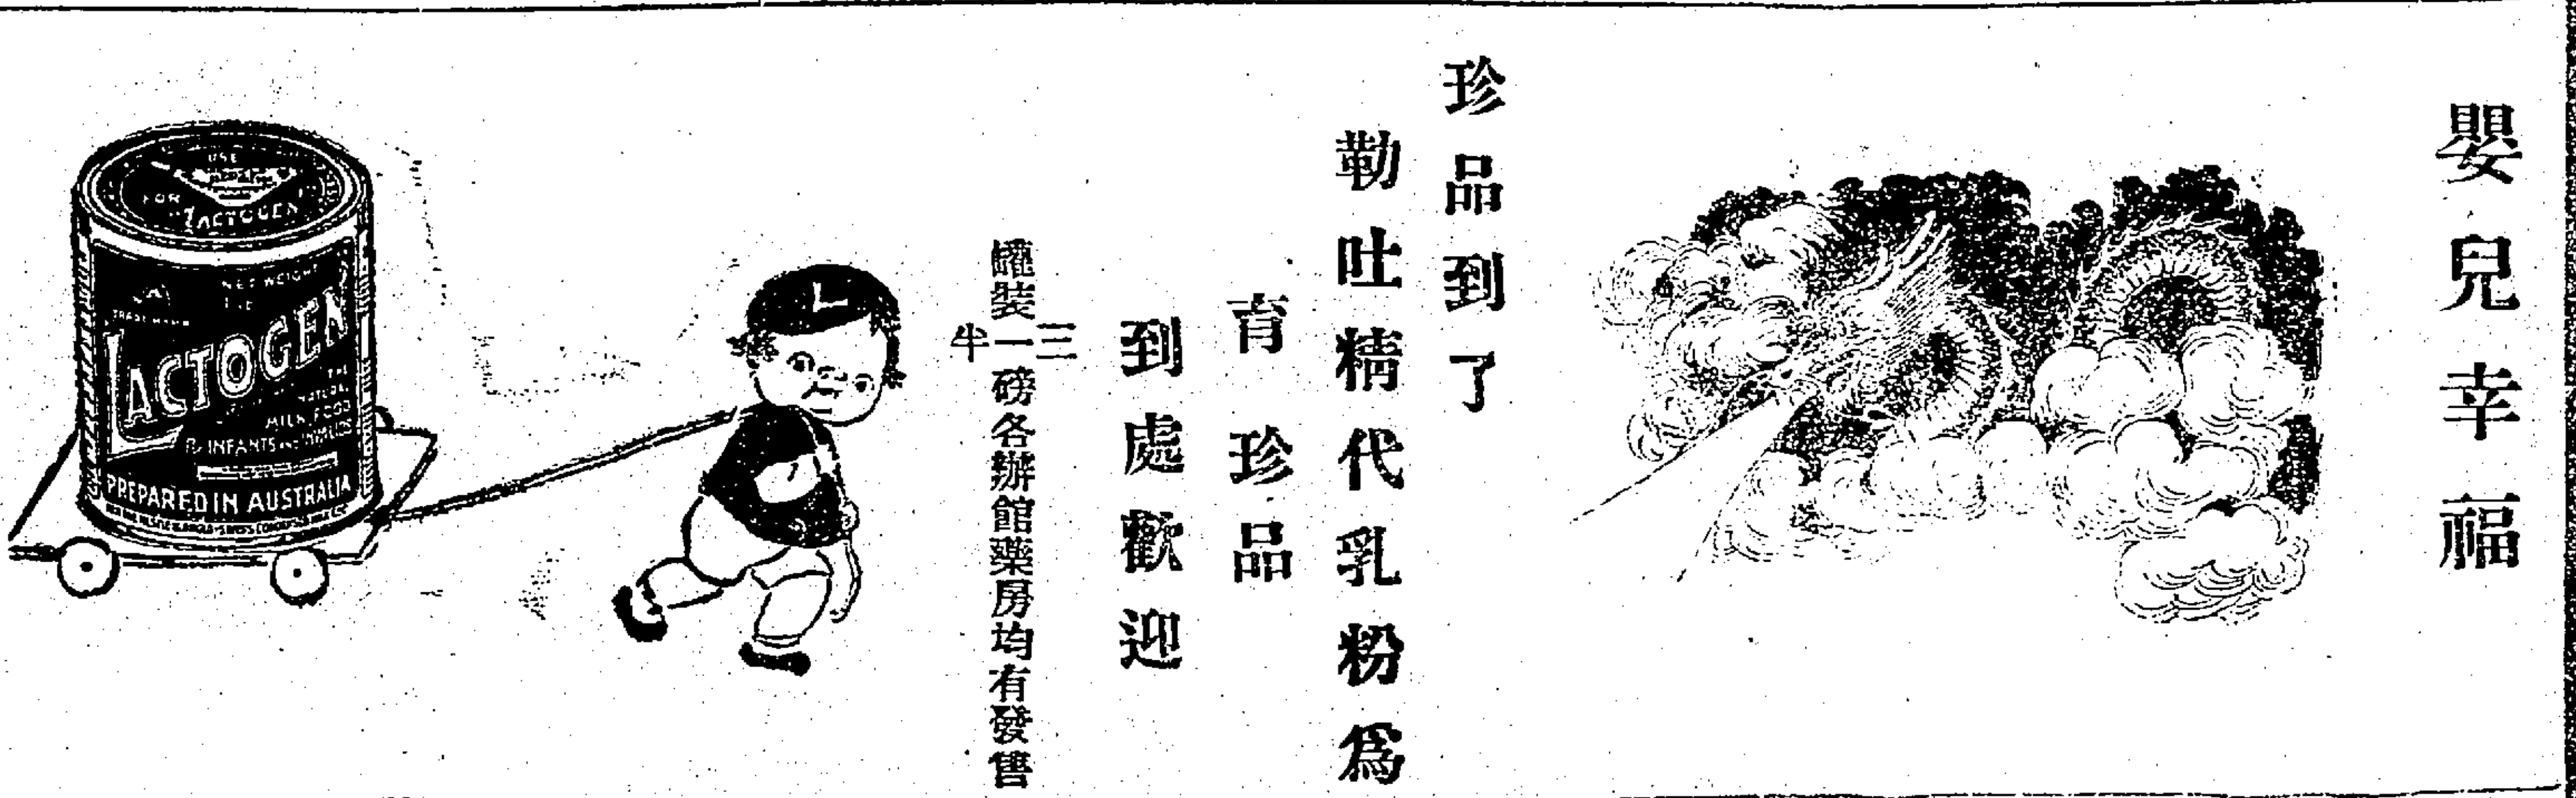 嬰兒幸福
珍品到了
勒吐精代乳粉爲
育珍品
到處歡迎
罐裝三一半磅各辦館藥房均有發售
USE
FOR
LACTOGEN
NET WEIGHT
TRADE MARK
LACTOGEN
THE
NATIONAL
MILK FOOD
FOR INFANTS AND INVALIDS
PREPARED IN AUSTRALIA